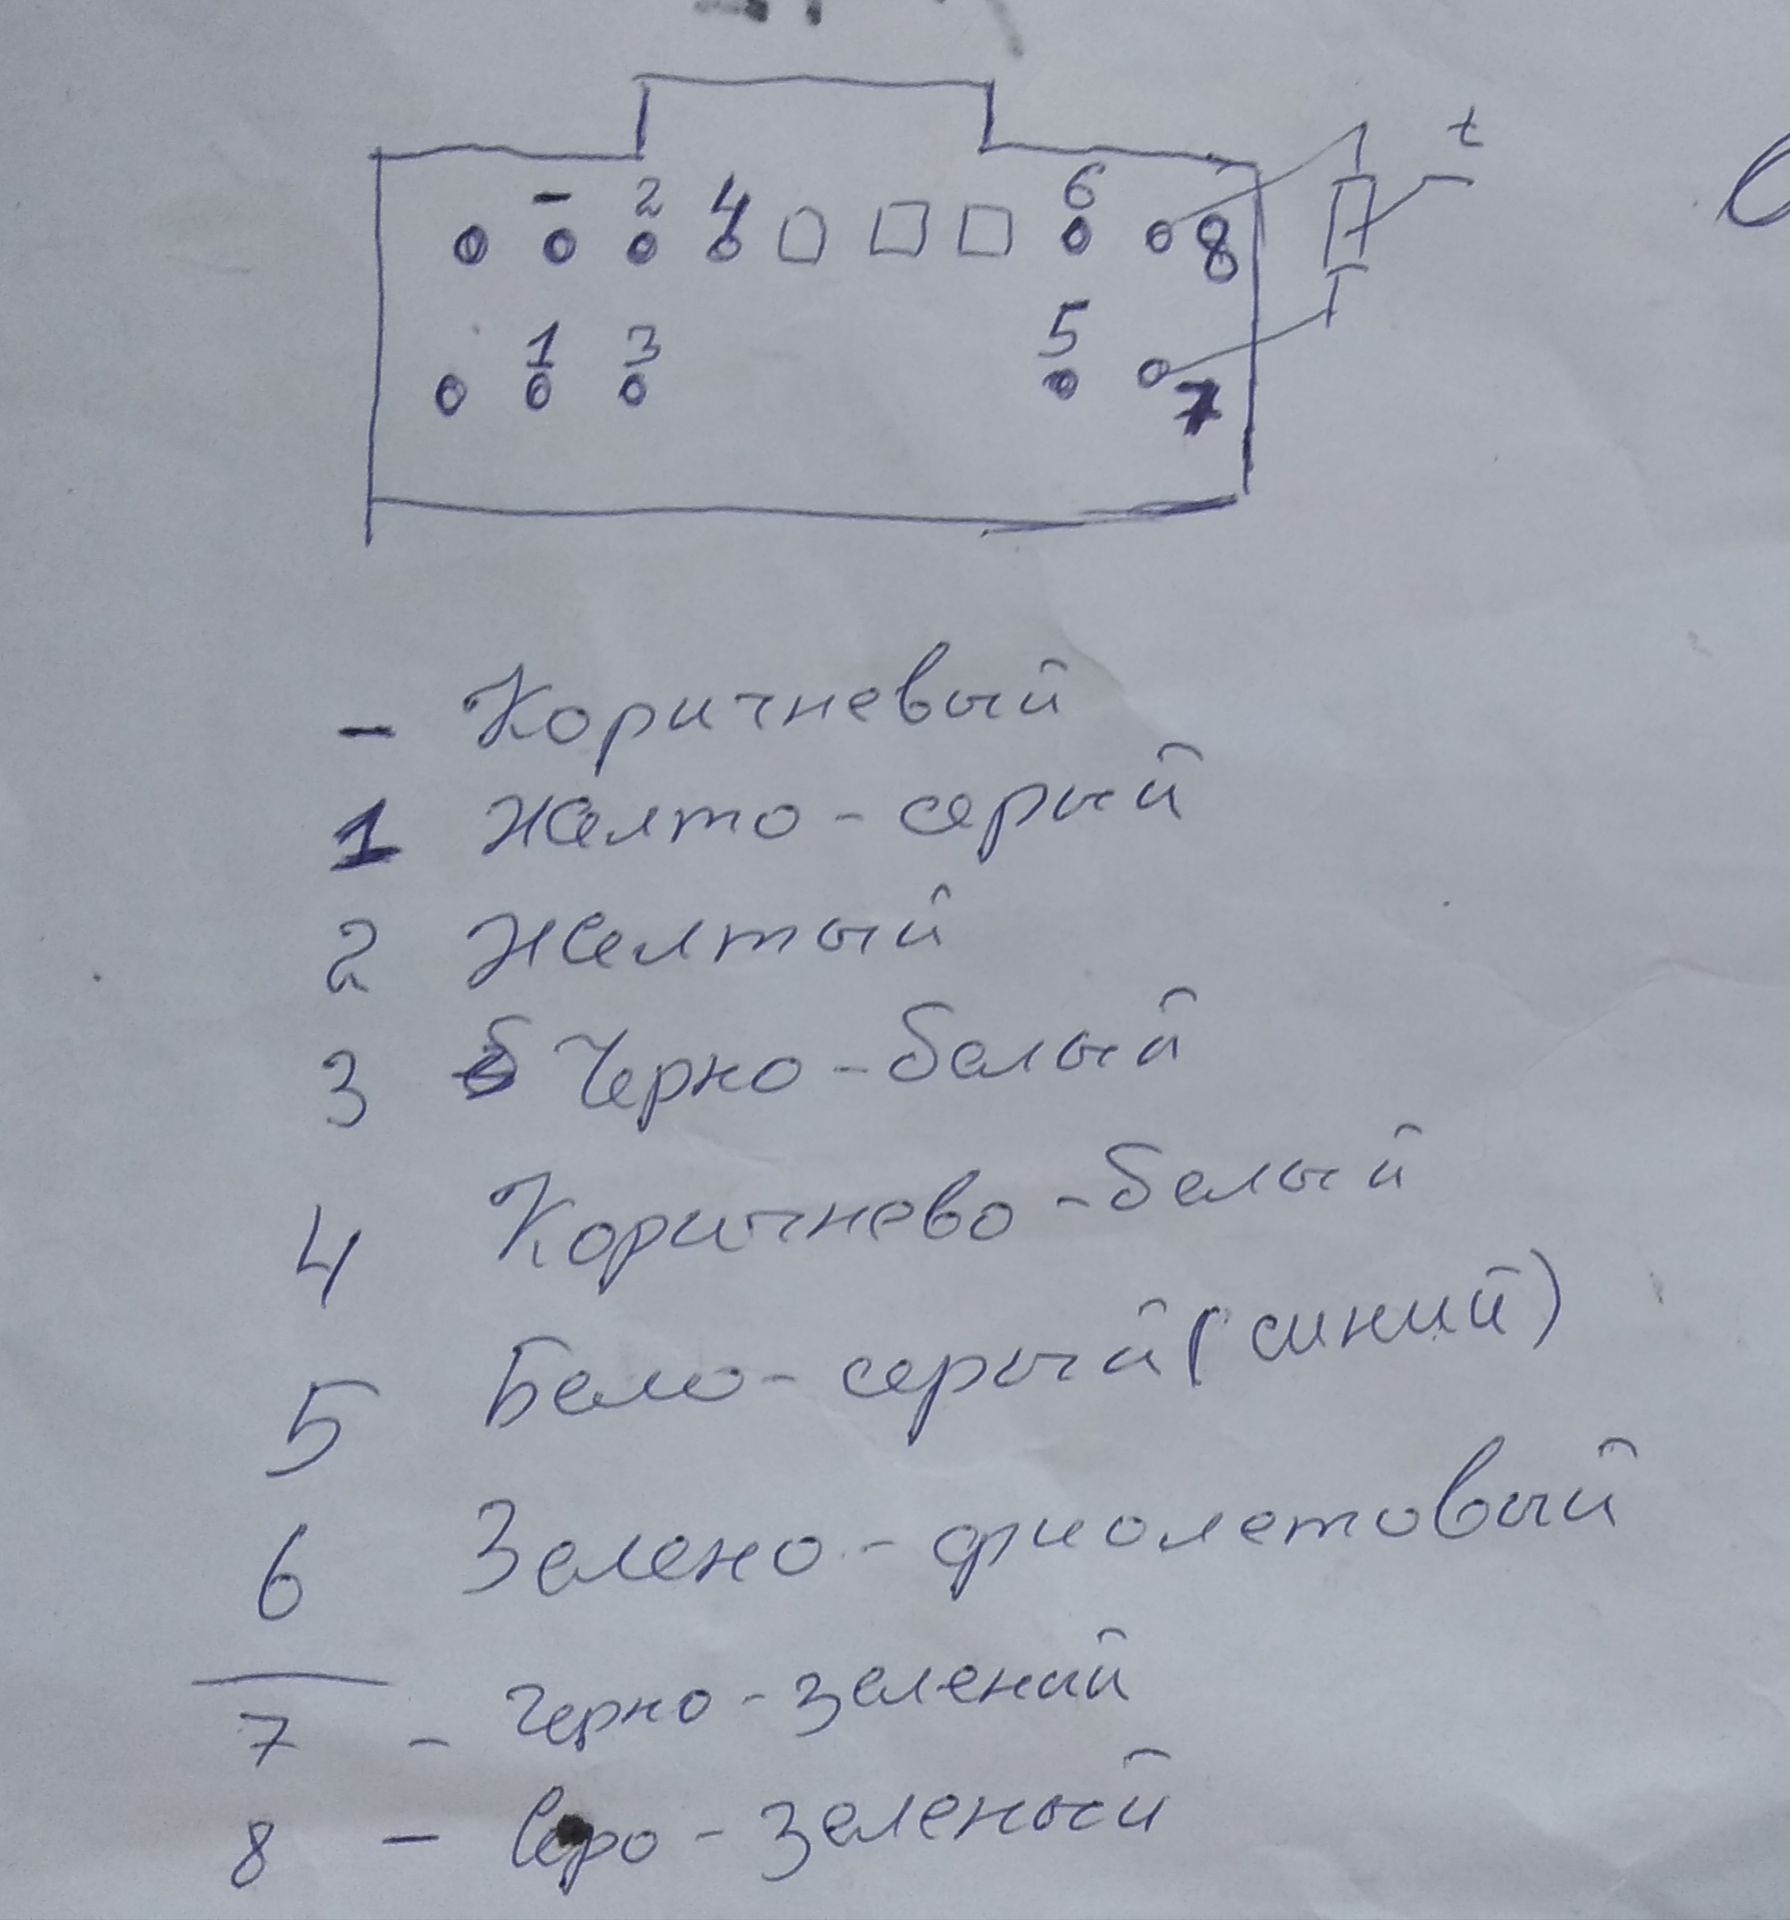 - 2 4 6
8
t
1 3 5
7
- Коричневый
1 Желто-серый
2 Желтый
3 Б Черно-белый
4 Коричнево-белый
5 Бело-серый (синий)
6 Зелено-фиолетовый
7 - Черно-зелений
8 - Серо-зеленый